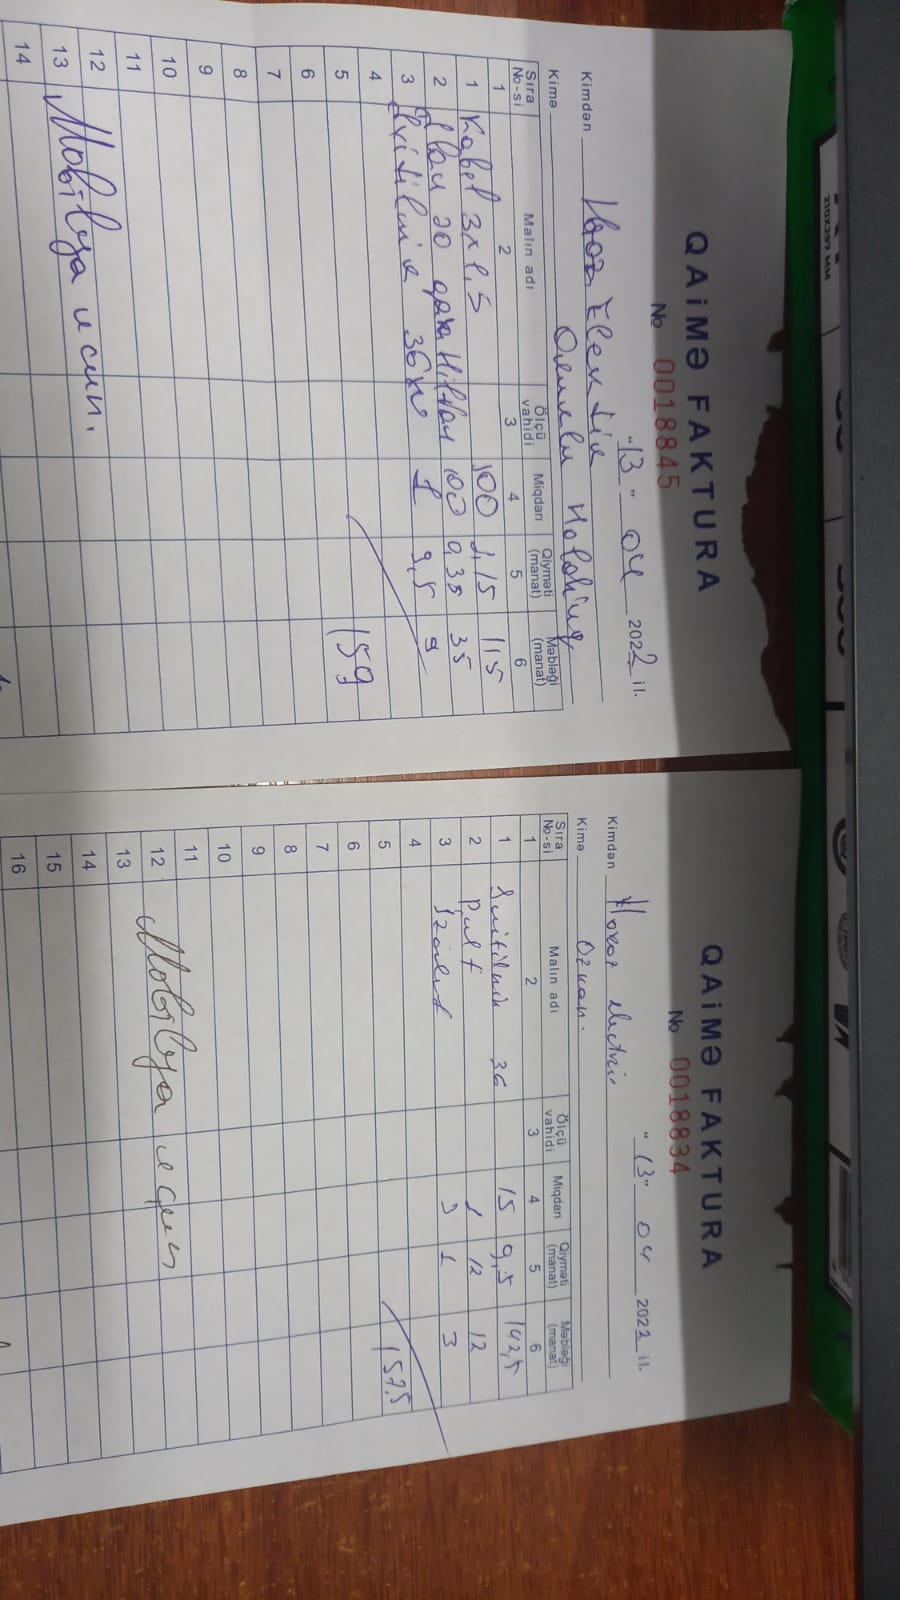 QAiMƏ FAKTURA
№ 0018845
"13" 04 2022 il.
Kimdən
Kimə Holding
Sıra №-si Malın adı Ölçü vahidi Miqdarı Qiyməti (manat) Məbləği (manat)
1 2 3 4 5 6
1 Kabel 3x1,5 100 1,15 115
2 20 100 0,35 35
3 36 1 9,5 9
4
5 159
6
7
8
9
10
11
12
13 Mobilya и сип.
14
QAiMƏ FAKTURA
№ 0018834
"13" 04 2022 il.
Kimdən electric
Kimə Özkan.
Sıra №-si Malın adı Ölçü vahidi Miqdarı Qiyməti (manat) Məbləği (manat)
1 2 3 4 5 6
1 36 15 9,5 142,5
2 pult 1 12 12
3 3 1 3
4
5 157.5
6
7
8
9
10
11
12 Mobilya и
13
14
15
16
210X297 MM